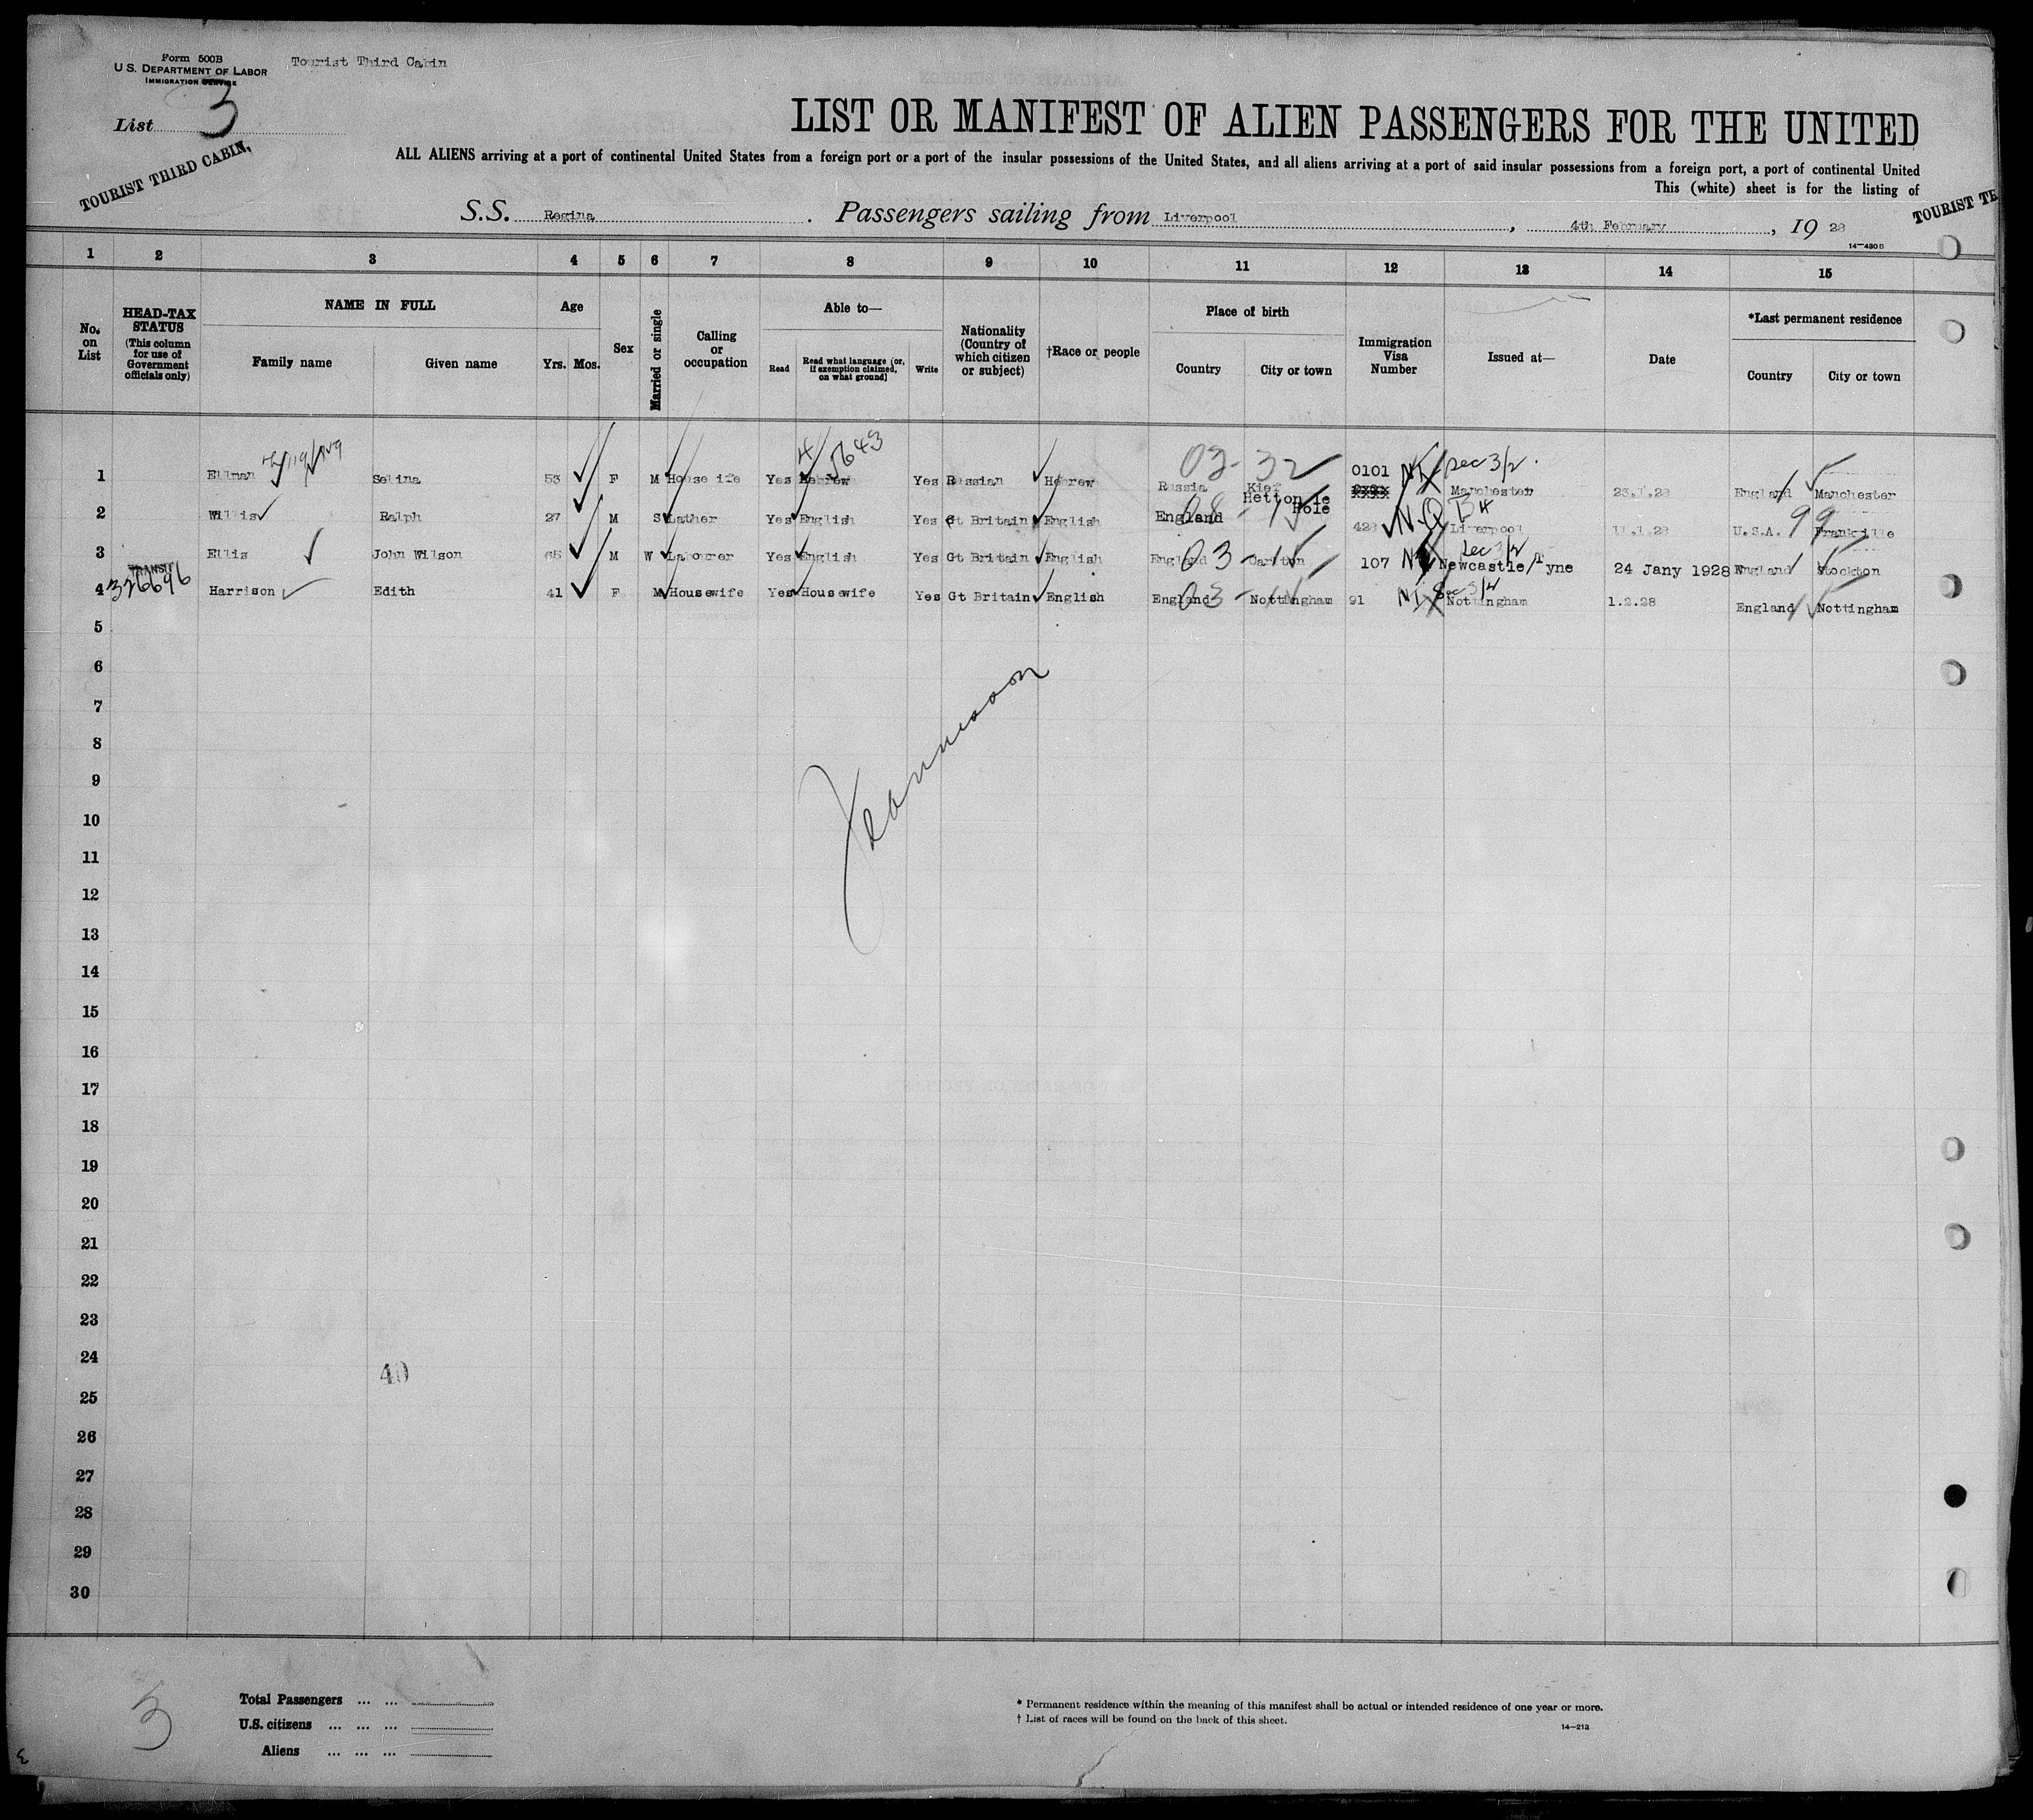 Form 500B
U.S. DEPARTMENT OF LABOR
IMMIGRATION SERVICE
Tourist Third Cabin
List 3
TOURIST THIRD CABIN,
LIST OR MANIFEST OF ALIEN PASSENGERS FOR THE UNITED
ALL ALIENS arriving at a port of continental United States from a foreign port or a port of the insular possessions of the United States, and all aliens arriving at a port of said insular possessions from a foreign port, a port of continental United
This (white) sheet is for the listing of
TOURIST
S.S. Regina . Passengers sailing from Liverpool , 4th February , 19 28
14-430B
1 2 3 4 5 6 7 8 9 10 11 12 13 14 15
No. on List
HEAD-TAX STATUS (This column for use of Government officials only)
NAME IN FULL
Family name Given name
Age
Yrs. Mos.
Sex
Married or single
Calling or occupation
Able to—
Read Read what language (or, if exemption claimed, on what ground) Write
Nationality (Country of which citizen or subject)
†Race or people
Place of birth
Country City or town
Immigration Visa Number
Issued at—
Date
*Last permanent residence
Country City or town
5643
02-32 Sec 3/2.
1 Ellman Selina 53 F M House ife Yes Hebrew Yes Russian Hebrew Russia Kief 0101 Manchester 23.1.28 England Manchester
2 Willis Ralph 27 M S Lather Yes English Yes Gt Britain English England Hetton le Hole 428 N.Q Liverpool 11.1.28 U.S.A. 99 Frankville
3 Ellis John Wilson 65 M W Labourer Yes English Yes Gt Britain English England 03 Carlton 107 Sec 3/2 Newcastle/Tyne 24 Jany 1928 England Stockton
TRANSIT
4 326696 Harrison Edith 41 F M Housewife Yes Housewife Yes Gt Britain English England 03 Nottingham 91 Sec 3/2 Nottingham 1.2.28 England Nottingham
5
6
7
8
9
10
11
12
13
14
15
16
17
18
19
20
21
22
23
24
40
25
26
27
28
29
30
3
Total Passengers ... ...
U.S. citizens ... ... ...
Aliens ... ... ...
* Permanent residence within the meaning of this manifest shall be actual or intended residence of one year or more.
† List of races will be found on the back of this sheet.
14-213